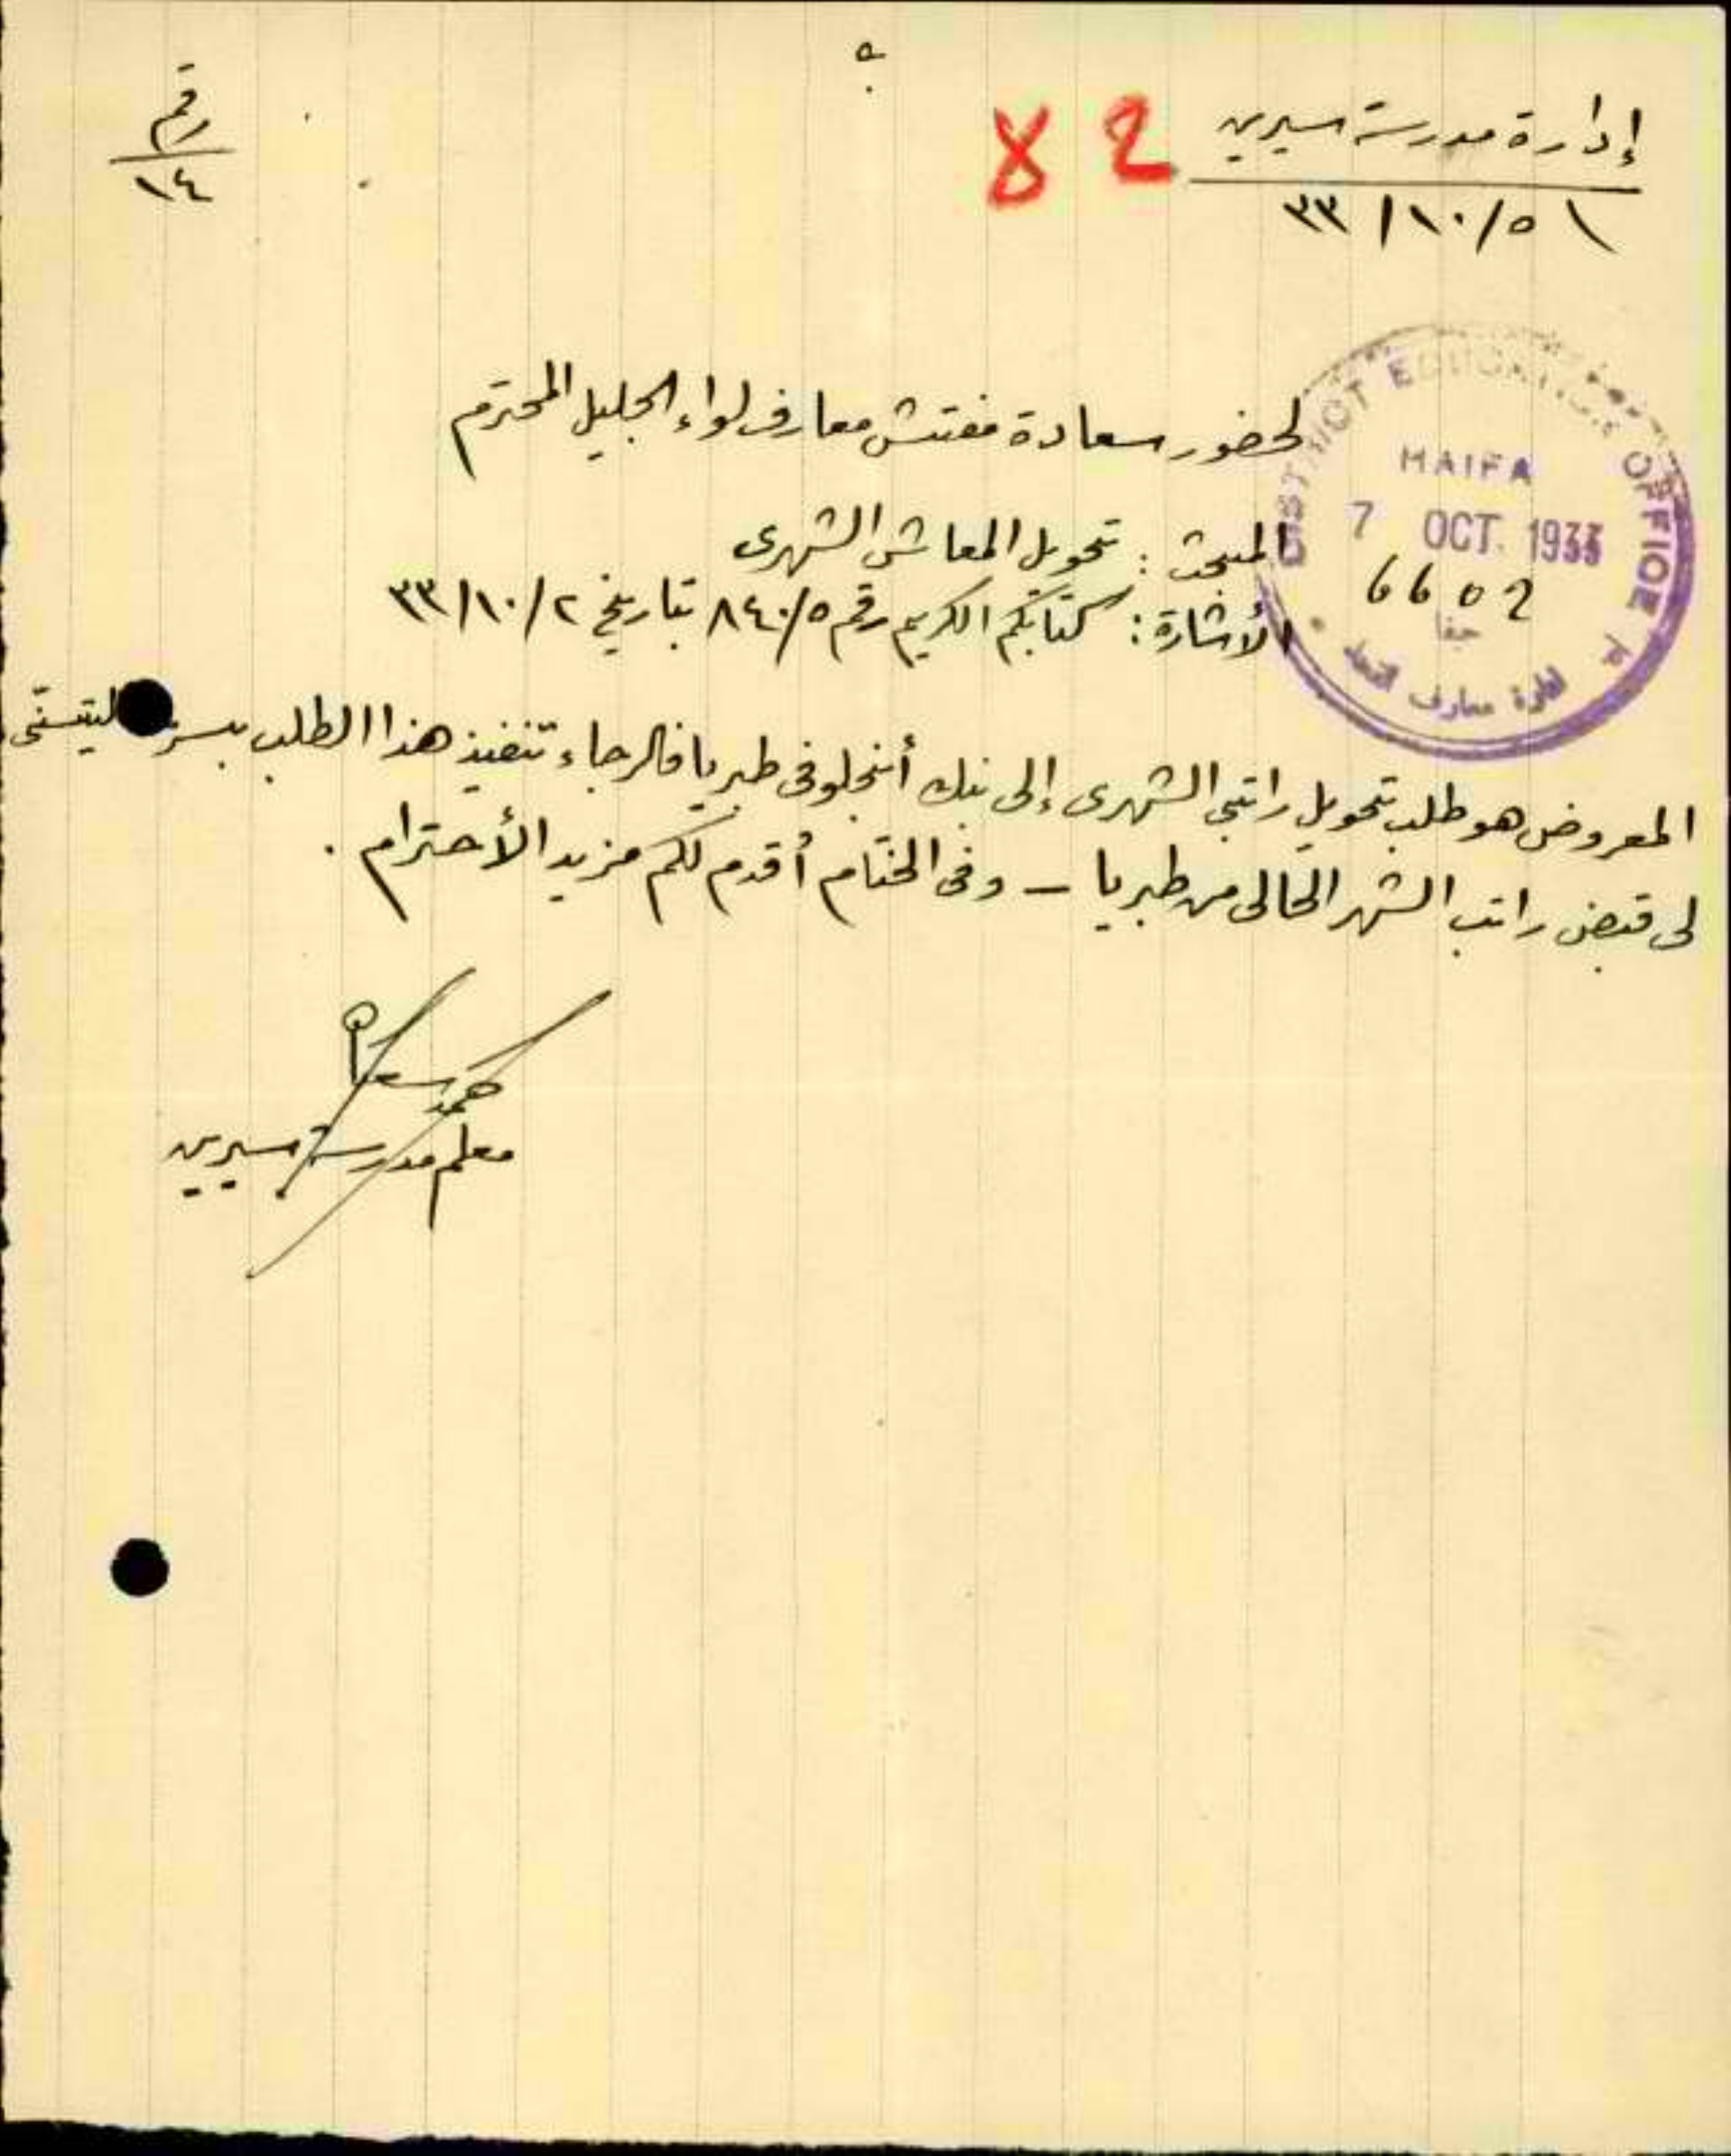 إدارة مدرسة سيرين
٣٣/١٠/٥
82
رقم
١٤
DISTRICT EDUCATION OFFICE
HAIFA
7 OCT. 1933
6602
حيفا
إدارة معارف
لحضور سعادة مفتش معارف لواء الجليل المحترم
المبحث : تحويل المعاش الشهرى
الأشارة : كتابكم الكريم رقم ٨٤٠/٥ بتاريخ ٣٣/١٠/٢
المعروض هو طلب تحويل راتبي الشهرى إلى بنك أنجلو فى طبريا فالرجاء تنفيذ هذا الطلب ليتسنّى
لى قبض راتب الشهر الحالى من طبريا – وفى الختام أقدم لكم مزيد الأحترام .
معلم مدرسة سيرين